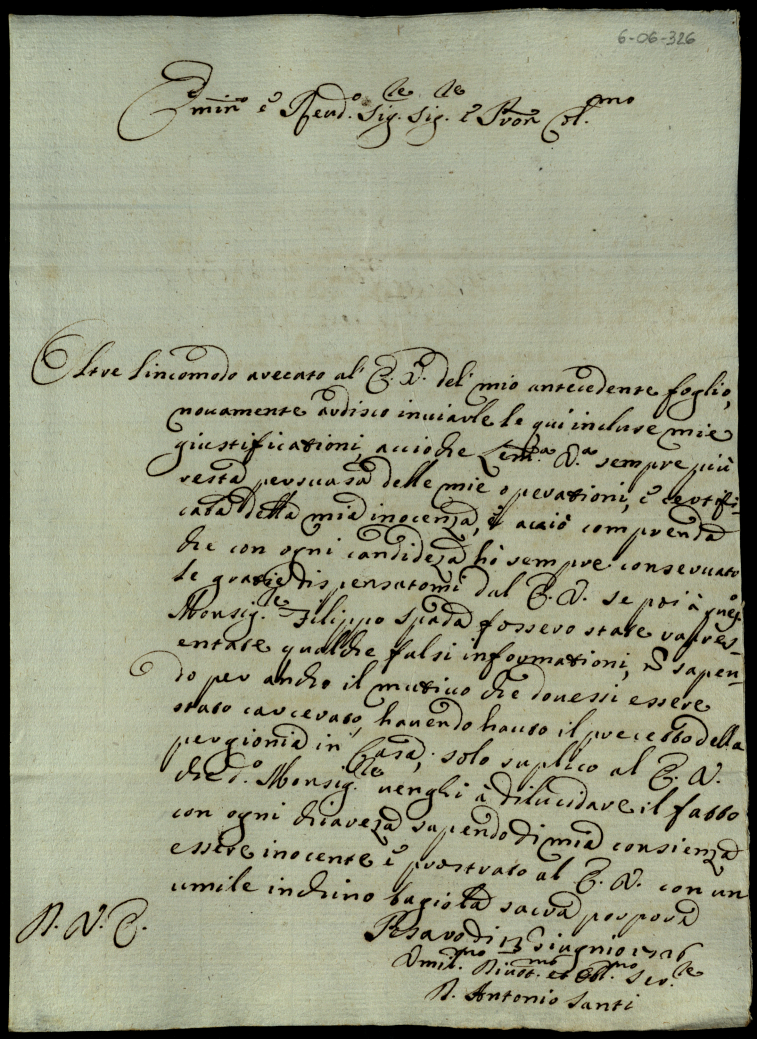 6-06-326
Emin.o è Reud.o Sig.le Sig.le è Pron Col.mo
Oltre lincomodo arecato al' E. V. del' mio antecedente foglio,
nouamente ardisco inuiarle le qui incluse mie
giustificationi, acciòche Lem.a V.a sempre più
restà persuasa delle mie operationi, è certifi-
cata della mia inocenza, è acciò comprenda
che con ogni candideza hò sempre conseruato
le gratie dispensatomi dal E. V. se poi à
Monsig.le Filippo Spada fossero state rapres-
entate qualche falsi informationi, è sapen-
do per ancho il mutiuo che douessi essere
stato carcerato, hauendo hauto il precetto della
pergionia in Casa; solo suplico al E. V.
che d.o Monsig.le uenghi à dilucidare il fatto
con ogni chiareza sapendo di mia consienza
essere inocente è prostrato al E. V. con un
umile inchino bagio la sacra porpora
D. V. E.
Pesaro di 13 Giugnio 1726
Vmil.mo Diuot.mo et Obl.mo Ser.le
D. Antonio Santi